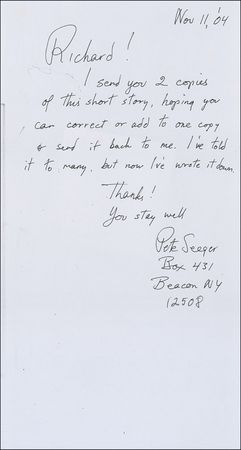 Nov 11, '04
Richard!
I send you 2 copies
of this short story, hoping you
can correct or add to one copy
& send it back to me. I've told
it to many, but now I've wrote it down.
Thanks!
You stay well
Pete Seeger
Box 431
Beacon NY
12508